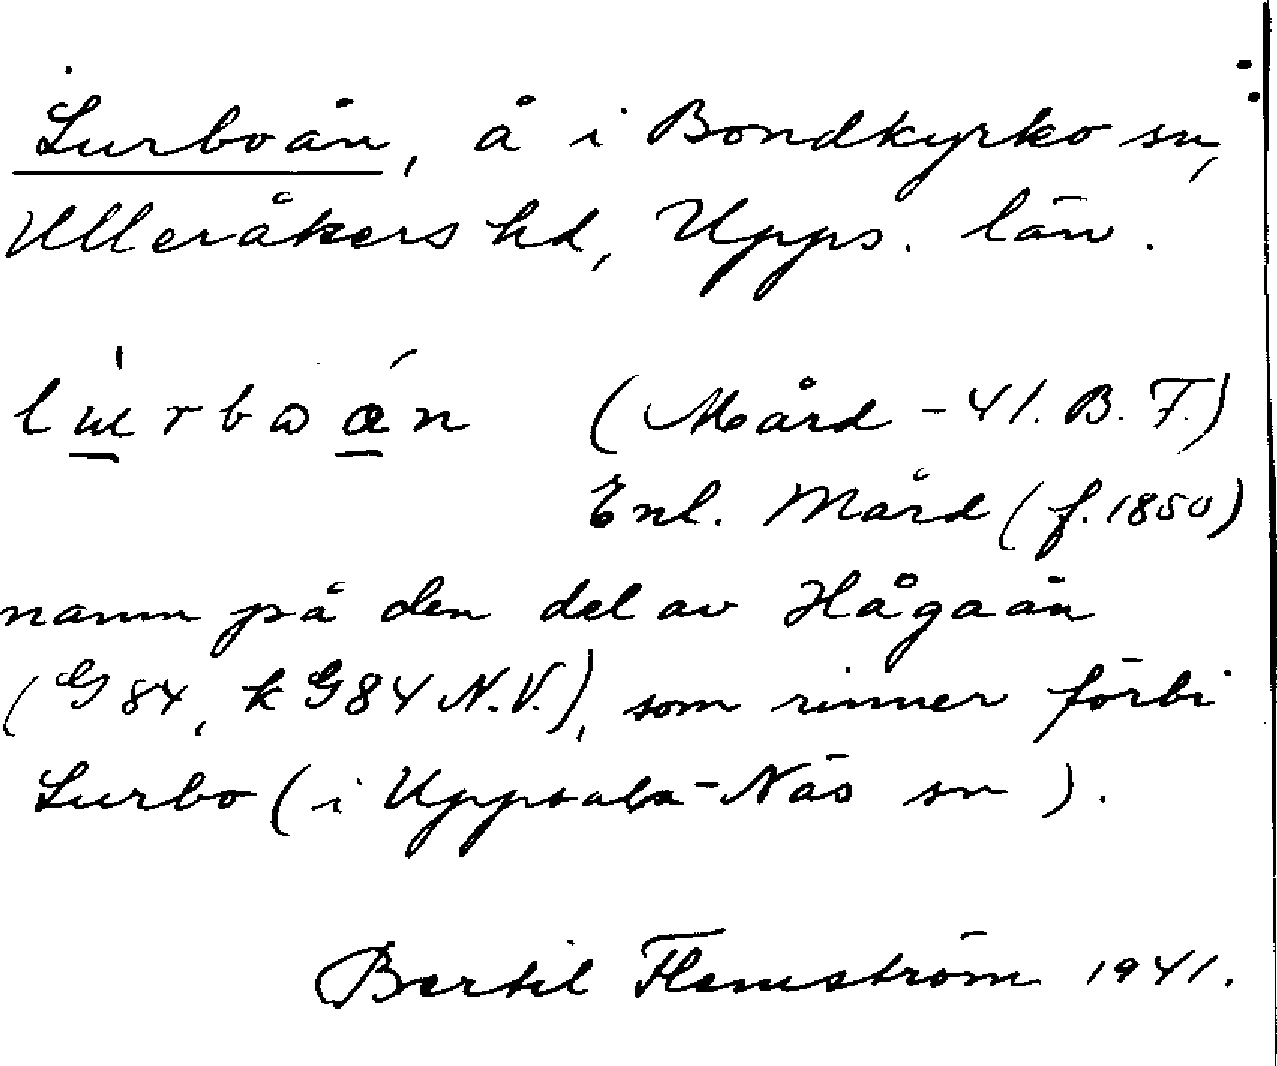 Lurboån, å i Bondkyrko sn,
Ulleråkers hd, Upps. län.
(Mård -41. B. F.)
Enl. Mård (f. 1850)
namn på den del av Hågaån
(G 84, k G84 N.V.), som rinner förbi
Lurbo (i Uppsala-Näs sn).
Bertil Flemström 1941.